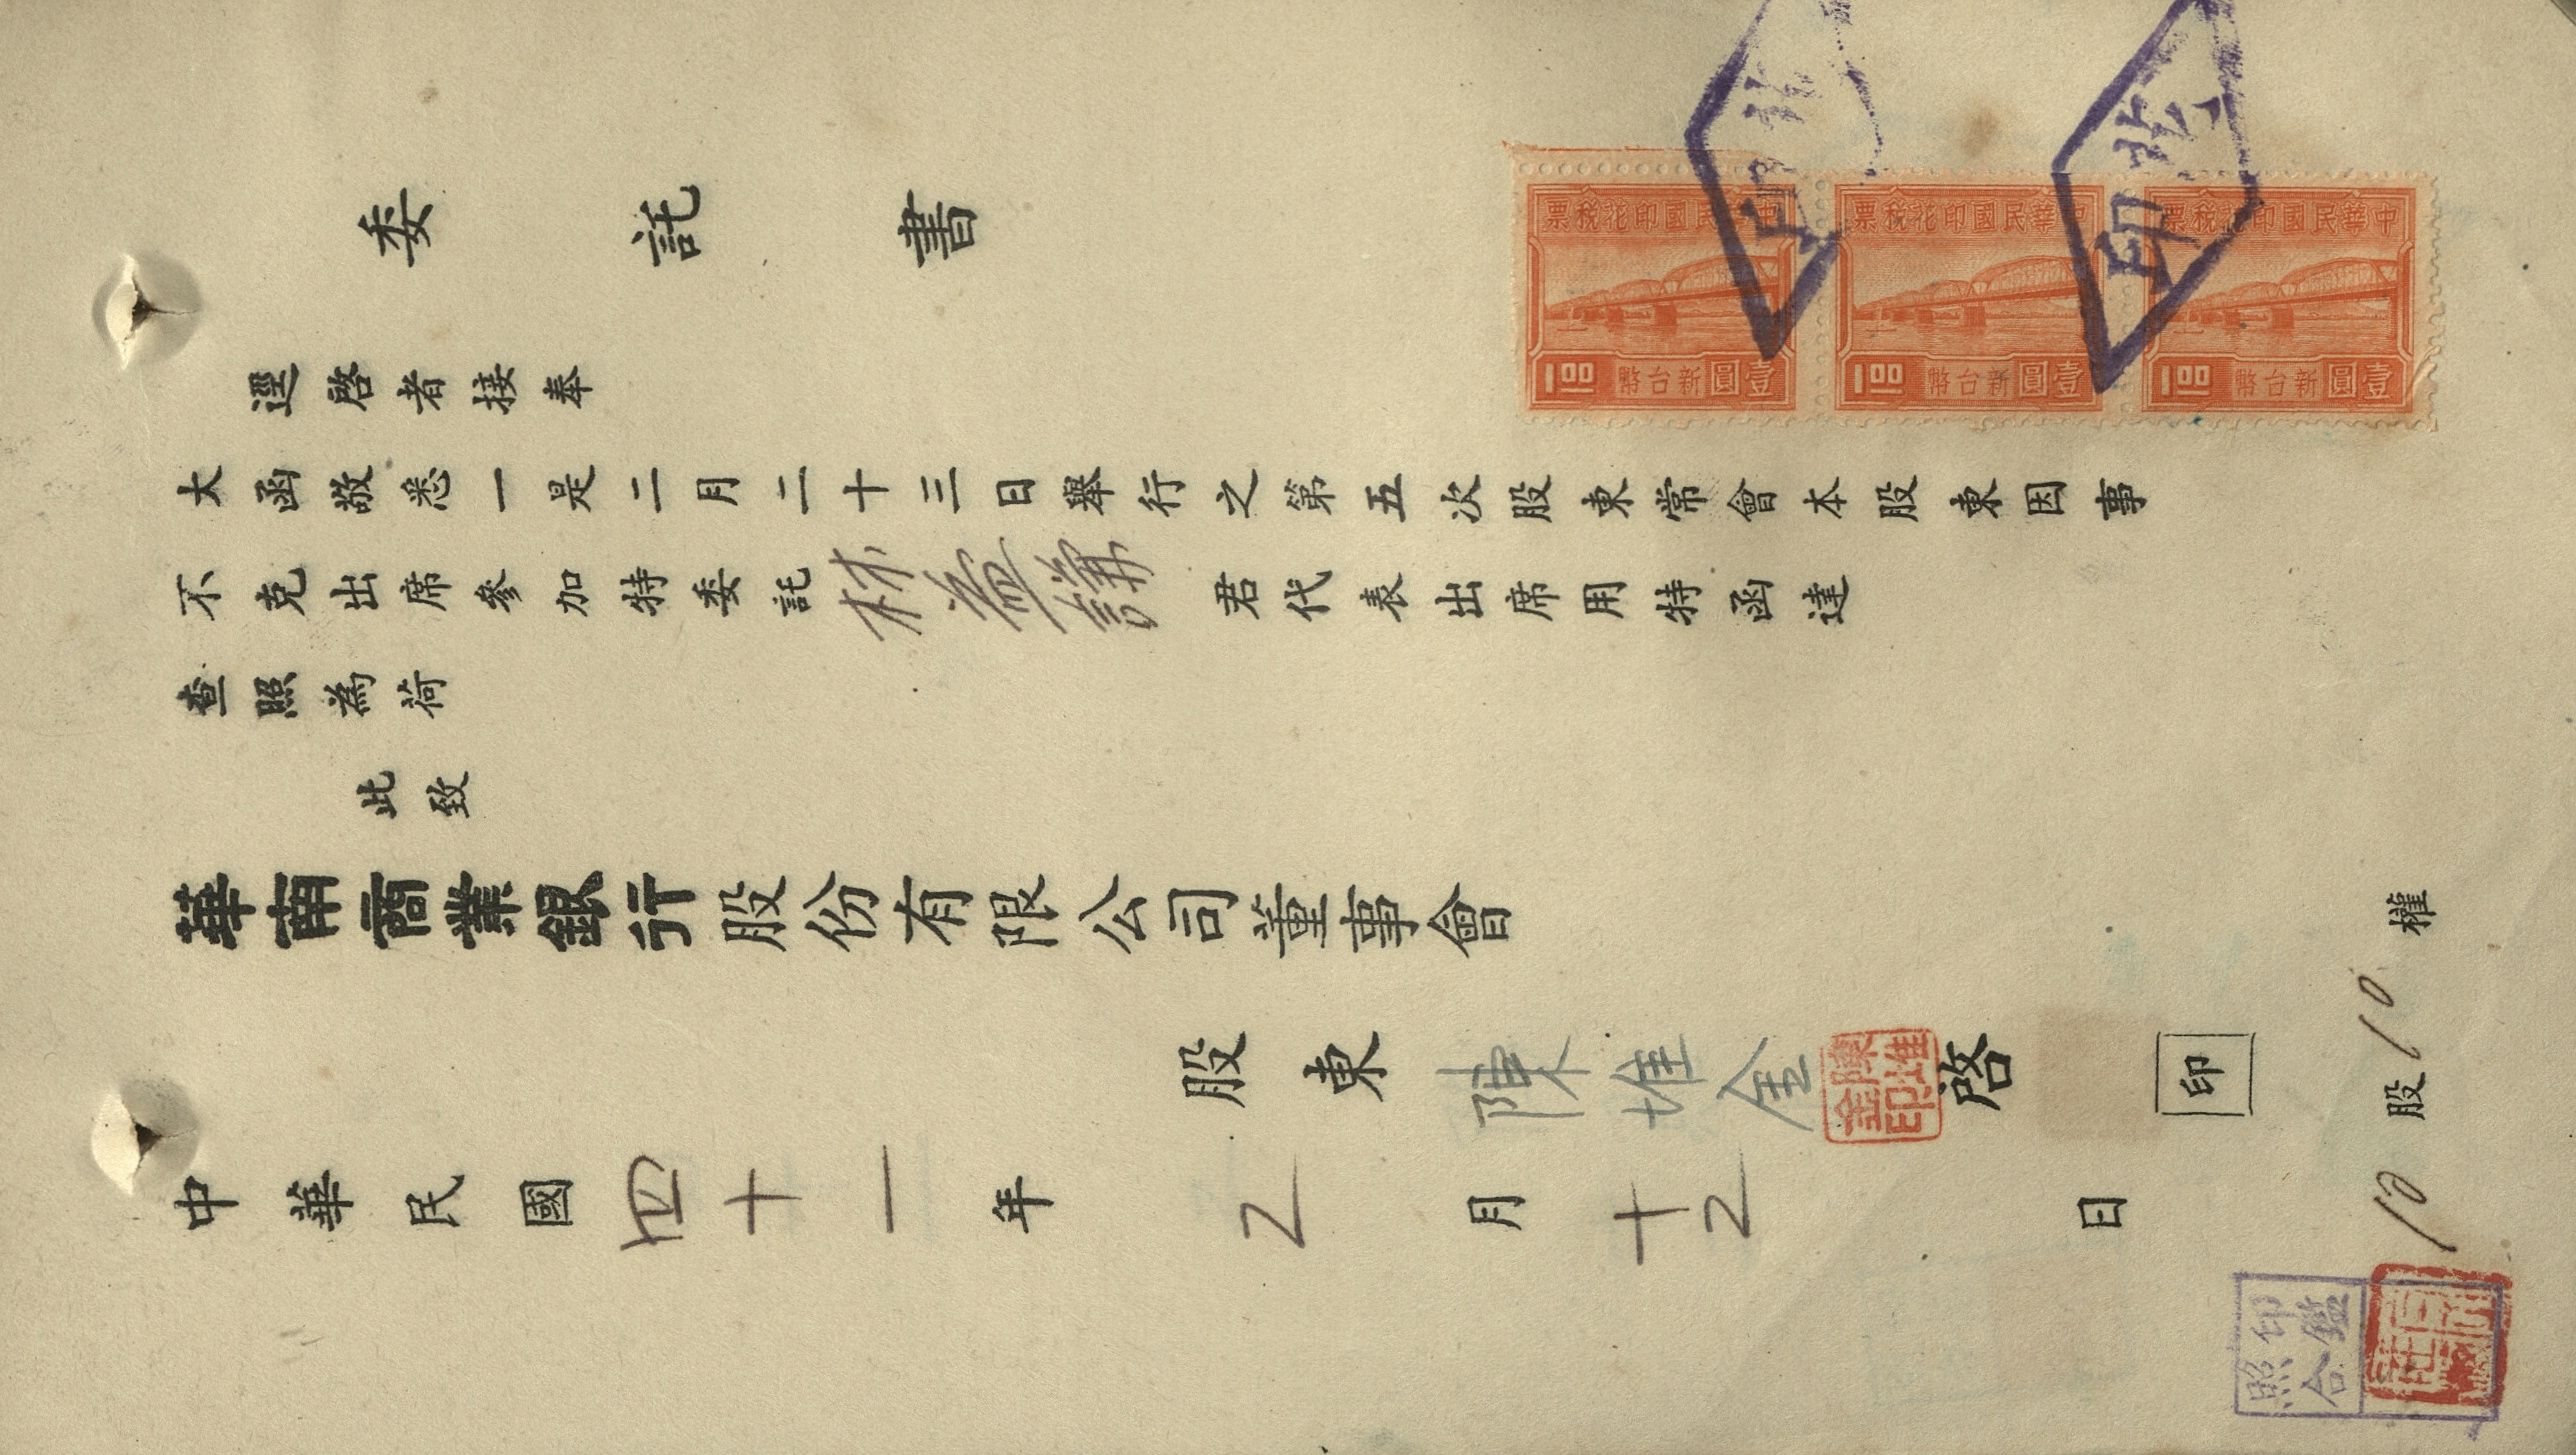 委託書
逕啓者接奉
大函敬悉一是二月二十三日舉行之第五次股東常會本股東因事
不克出席參加特委託林益謙君代表出席用特函達
查照為荷
此致
華南商業銀行股份有限公司董事會
股東陳堆金啓 印
陳堆金印
中華民國四十一年2月十2日
10股10權
印鑑照合
中華民國印花稅票
1.00 新台幣壹圓
中華民國印花稅票
1.00 新台幣壹圓
中華民國印花稅票
1.00 新台幣壹圓